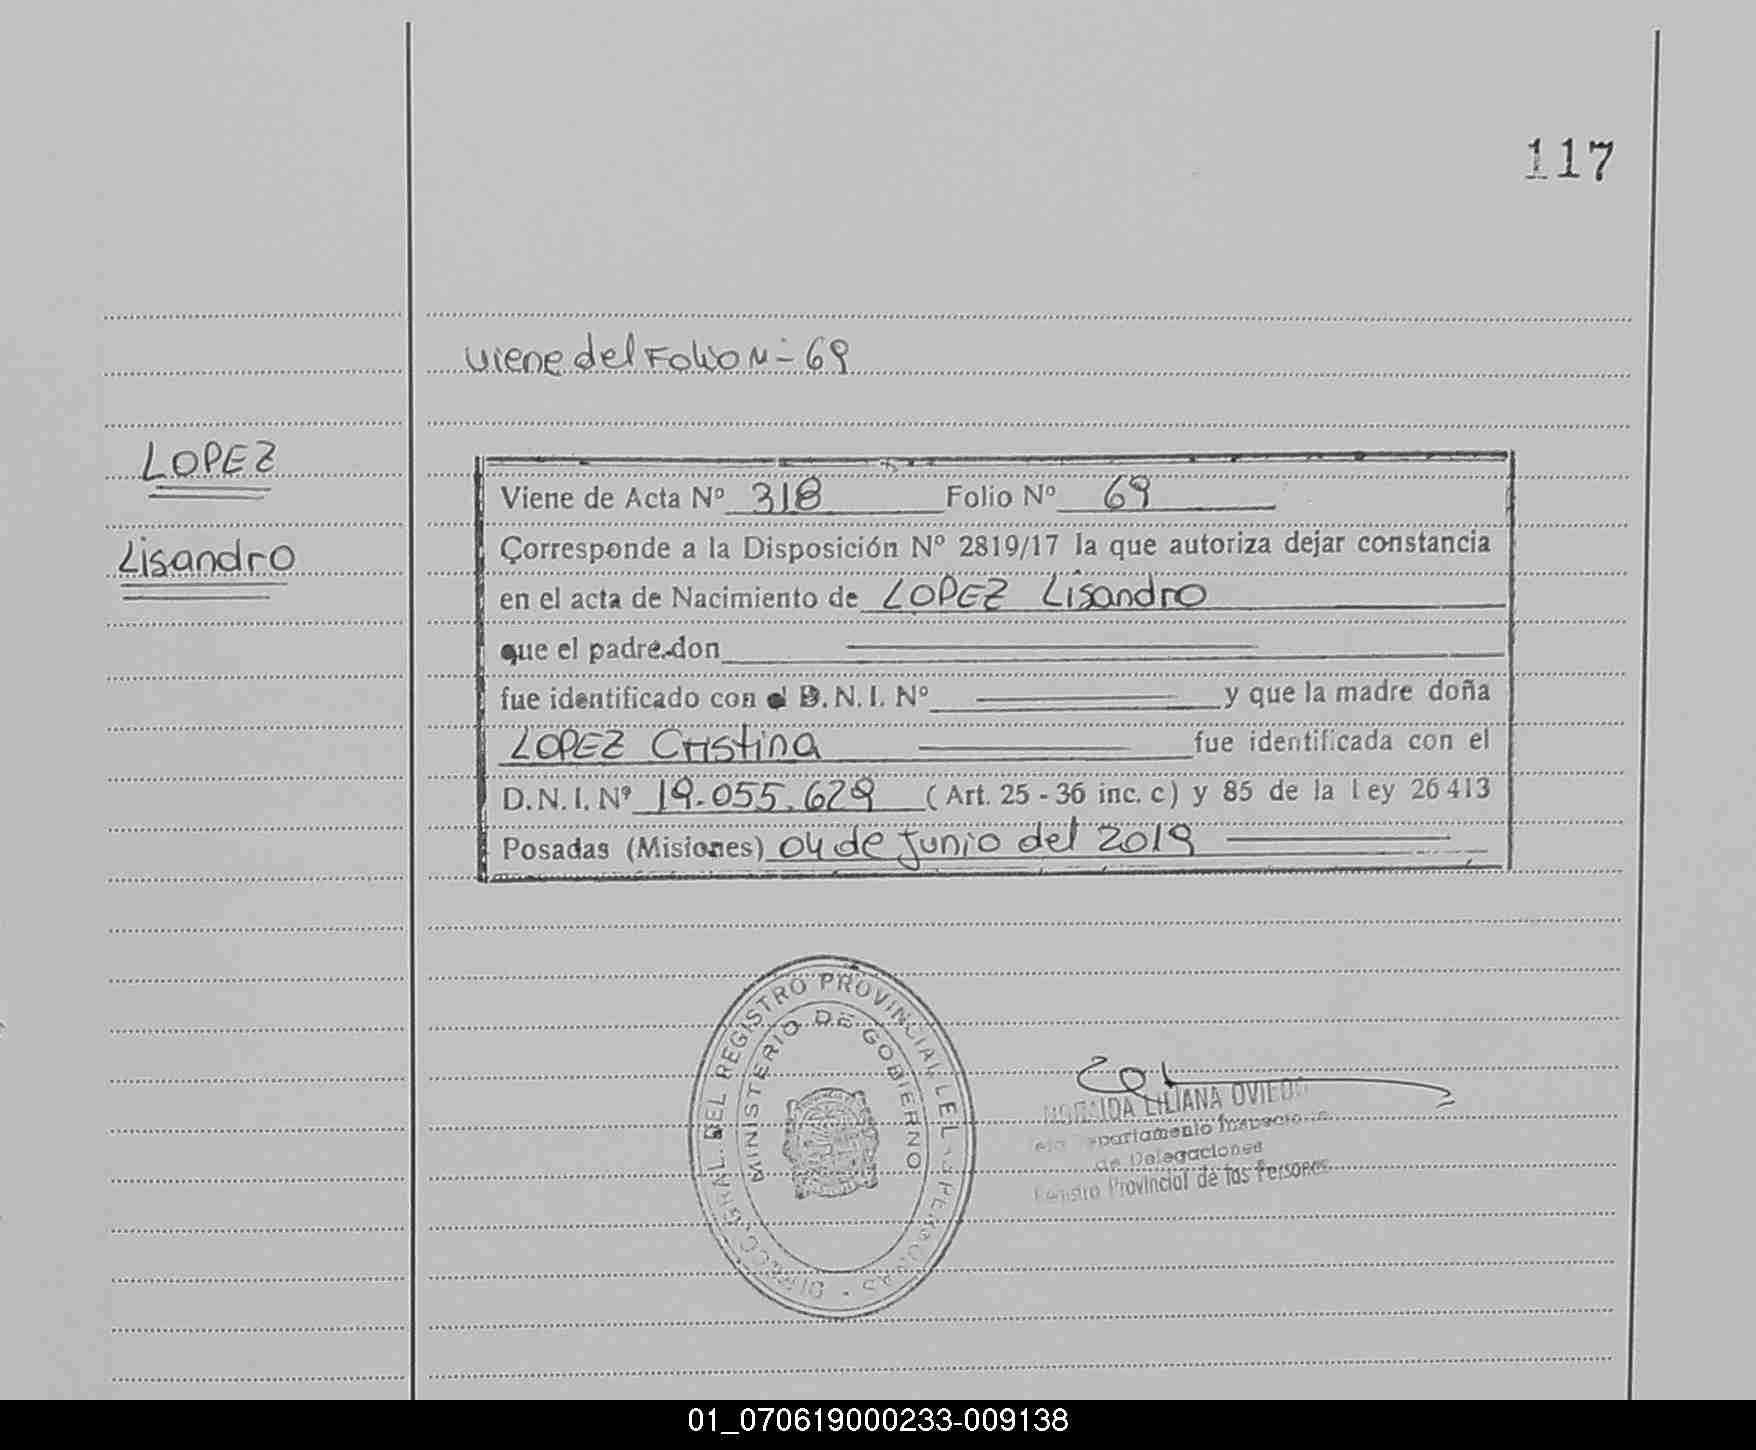 117
Viene del Folio N- 69
LOPEZ
Lisandro
Viene de Acta Nº 318 Folio Nº 69
Corresponde a la Disposición Nº 2819/17 la que autoriza dejar constancia
en el acta de Nacimiento de LOPEZ Lisandro
que el padre don
fue identificado con el D.N.I. Nº y que la madre doña
LOPEZ Cristina fue identificada con el
D.N.I. Nº 19.055.629 (Art. 25 - 36 inc. c) y 85 de la Ley 26413
Posadas (Misiones) 04 de Junio del 2019
DIRECC. GRAL. DEL REGISTRO PROVINCIAL DE LAS PERSONAS
MINISTERIO DE GOBIERNO
LILIANA OVIEDO
Departamento Inspección
de Delegaciones
Registro Provincial de las Personas
01_070619000233-009138